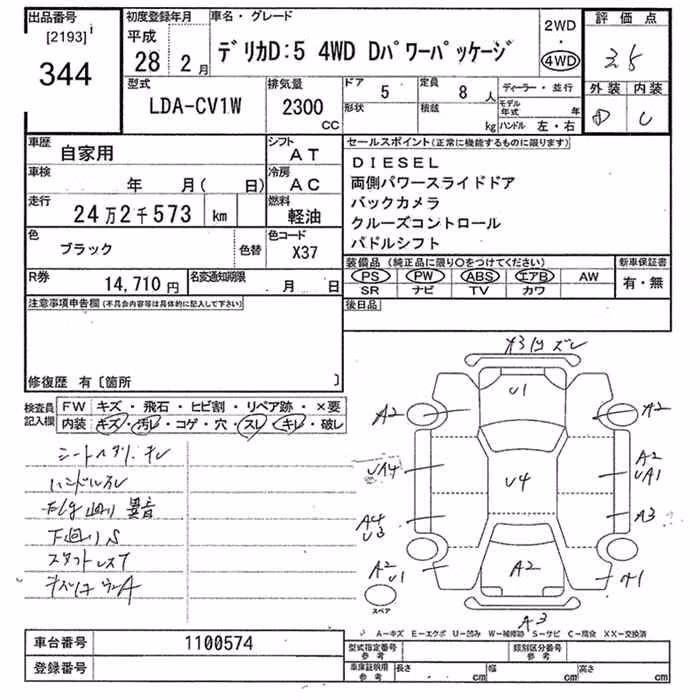 出品番号
[2193]
344
初度登録年月
平成
28 2月
車名・グレード
デリカD:5 4WD Dパワーパッケージ
2WD
・
4WD
評価点
3.5
外装 内装
D C
型式
LDA-CV1W
排気量
2300
CC
ドア 5
形状
定員 8人
積載 kg
ディーラー・並行
モデル年式 年
ハンドル 左・右
車歴
自家用
シフト
AT
車検
年 月( 日)
冷房
AC
走行
24万2千573 km
燃料
軽油
色
ブラック
色替
色コード
X37
R券
14,710円
名変通知期限
月 日
セールスポイント(正常に機能するものに限ります)
DIESEL
両側パワースライドドア
バックカメラ
クルーズコントロール
パドルシフト
装備品(純正品に限り○をつけてください)
新車保証書
PS PW ABS エアB AW
SR ナビ TV カワ
有・無
後日品
注意事項申告欄(不具合内容等は具体的に記入して下さい)
修復歴 有〔箇所 〕
検査員記入欄
FW キズ・飛石・ヒビ割・リペア跡・×要
内装 キズ・汚レ・コゲ・穴・スレ・キレ・破レ
ハンドルスレ
異音
下回りS
A3
U1
A2
A2
UA4
U4
A2
UA1
A4
U3
A3
A2
U1
A2
A1
A3
スペア
A-キズ E-エクボ U-凹み W-補修跡 S-サビ C-腐食 XX-交換済
車台番号
1100574
登録番号
型式指定番号
参考
類別区分番号
参考
車庫証明用
参考
長さ cm
幅 cm
高さ cm